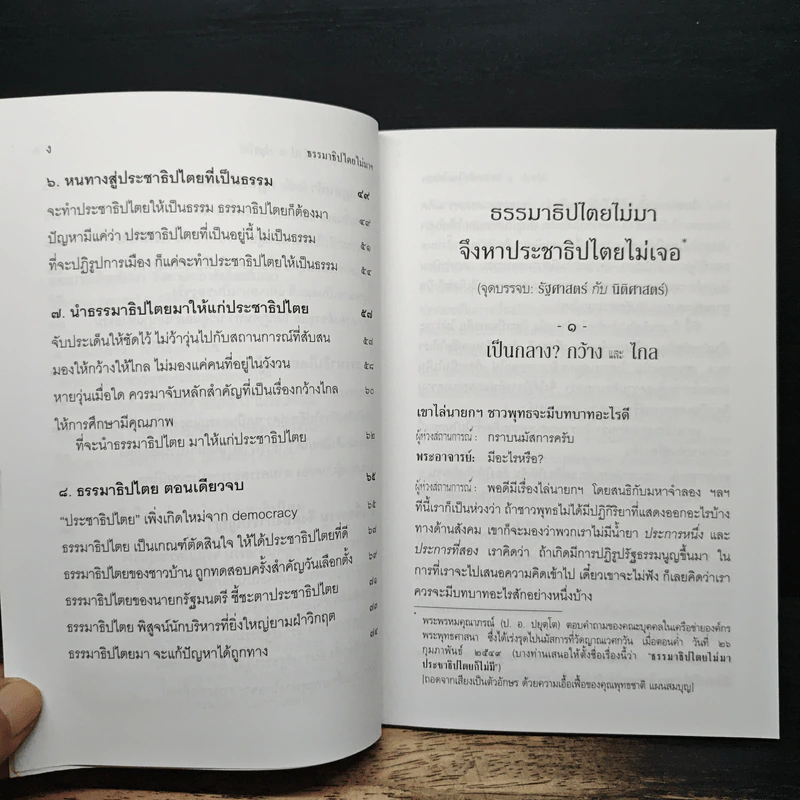 ง
ธรรมาธิปไตยไม่มาฯ
๖. หนทางสู่ประชาธิปไตยที่เป็นธรรม ๔๙
จะทำประชาธิปไตยให้เป็นธรรม ธรรมาธิปไตยก็ต้องมา ๔๙
ปัญหามีแค่ว่า ประชาธิปไตยที่เป็นอยู่นี้ ไม่เป็นธรรม ๕๑
ที่จะปฏิรูปการเมือง ก็แค่จะทำประชาธิปไตยให้เป็นธรรม ๕๔
๗. นำธรรมาธิปไตยมาให้แก่ประชาธิปไตย ๕๗
จับประเด็นให้ชัดไว้ ไม่ว้าวุ่นไปกับสถานการณ์ที่สับสน ๕๘
มองให้กว้างให้ไกล ไม่มองแค่คนที่อยู่ในวังวน ๕๘
หายวุ่นเมื่อใด ควรมาจับหลักสำคัญที่เป็นเรื่องกว้างไกล ๖๐
ให้การศึกษามีคุณภาพ
ที่จะนำธรรมาธิปไตย มาให้แก่ประชาธิปไตย ๖๒
๘. ธรรมาธิปไตย ตอนเดียวจบ ๖๕
“ประชาธิปไตย” เพิ่งเกิดใหม่จาก democracy ๖๕
ธรรมาธิปไตย เป็นเกณฑ์ตัดสินใจ ให้ได้ประชาธิปไตยที่ดี ๖๘
ธรรมาธิปไตยของชาวบ้าน ถูกทดสอบครั้งสำคัญวันเลือกตั้ง ๖๙
ธรรมาธิปไตยของนายกรัฐมนตรี ชี้ชะตาประชาธิปไตย ๗๑
ธรรมาธิปไตย พิสูจน์นักบริหารที่ยิ่งใหญ่ยามฝ่าวิกฤต ๗๓
ธรรมาธิปไตยมา จะแก้ปัญหาได้ถูกทาง ๗๔
ธรรมาธิปไตยไม่มา
จึงหาประชาธิปไตยไม่เจอ*
(จุดบรรจบ: รัฐศาสตร์ กับ นิติศาสตร์)
- ๑ -
เป็นกลาง? กว้าง และ ไกล
เขาไล่นายกฯ ชาวพุทธจะมีบทบาทอะไรดี
ผู้ห่วงสถานการณ์: กราบนมัสการครับ
พระอาจารย์: มีอะไรหรือ?
ผู้ห่วงสถานการณ์: พอดีมีเรื่องไล่นายกฯ โดยสนธิกับมหาจำลอง ฯลฯ
ที่นี้เราก็เป็นห่วงว่า ถ้าชาวพุทธไม่ได้มีปฏิกิริยาที่แสดงออกอะไรบ้าง
ทางด้านสังคม เขาก็จะมองว่าพวกเราไม่มีน้ำยา ประการหนึ่ง และ
ประการที่สอง เราคิดว่า ถ้าเกิดมีการปฏิรูปรัฐธรรมนูญขึ้นมา ใน
การที่เราจะไปเสนอความคิดเข้าไป เดี๋ยวเขาจะไม่ฟัง ก็เลยคิดว่าเรา
ควรจะมีบทบาทอะไรสักอย่างหนึ่งบ้าง
* พระพรหมคุณาภรณ์ (ป. อ. ปยุตฺโต) ตอบคำถามของคณะบุคคลในเครือข่ายองค์กร
พระพุทธศาสนา ซึ่งได้เร่งรุดไปนมัสการที่วัดญาณเวศกวัน เมื่อตอนค่ำ วันที่ ๒๖
กุมภาพันธ์ ๒๕๔๙ (บางท่านเสนอให้ตั้งชื่อเรื่องนี้ว่า “ธรรมาธิปไตยไม่มา
ประชาธิปไตยก็ไม่มี”)
[ถอดจากเสียงเป็นตัวอักษร ด้วยความเอื้อเฟื้อของคุณพุทธชาติ แผนสมบุญ]